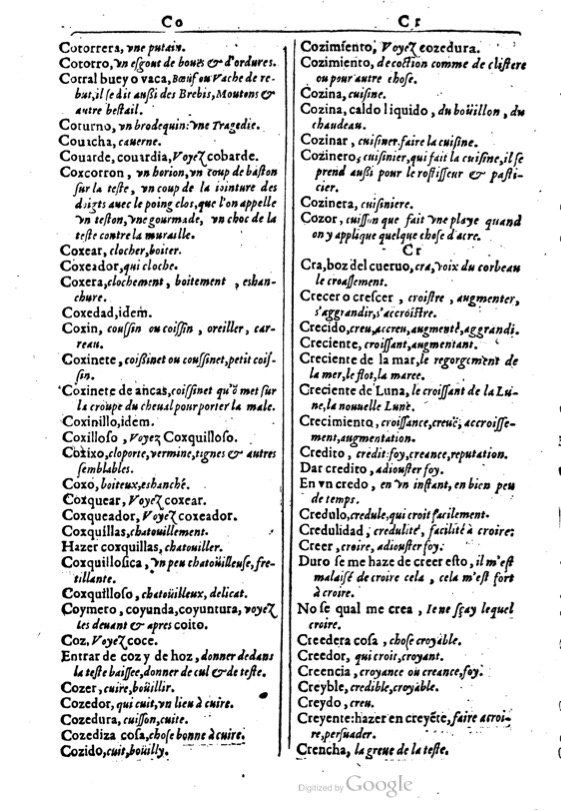 Co
Cotorrera, vne putain.
Cotorro, vn esgout de bouës & d'ordures.
Cotral buey o vaca, Bœuf ou Vache de re-
but, il se dit außi des Brebis, Moutons &
autre bestail.
Coturno, vn brodequin: vne Tragedie.
Couacha, cauerne.
Couarde, couardia, Voyez cobarde.
Coxcorron, vn horion, vn coup de baston
sur la teste, vn coup de la iointure des
doigts auec le poing clos, que l'on appelle
vn teston, vne gourmade, vn choc de la
teste contre la muraille.
Coxear, clocher, boiter.
Coxeador, qui cloche.
Coxera, clochement, boitement, eshan-
chure.
Coxedad, idem.
Coxin, coussin ou coissin, oreiller, car-
reau.
Coxinete, coißinet ou coussinet, petit coif-
sin.
Coxinete de ancas, coissinet qu'ō met sur
la croupe du cheual pour porter la male.
Coxinillo, idem.
Coxilloso, Voyez Coxquilloso.
Coxixo, cloporte, vermine, tignes & autres
semblables.
Coxo, boiteux, eshanché.
Coxquear, Voyez coxear.
Coxqueador, Voyez coxeador.
Coxquillas, chatouillement.
Hazer coxquillas, chatouiller.
Coxquillosica, vn peu chatoüilleuse, fre-
tillante.
Coxquilloso, chatoüilleux, delicat.
Coymero, coyunda, coyuntura, voyez
les deuant & apres coito.
Coz, Voyez coce.
Entrar de coz y de hoz, donner dedans
la teste baissee, donner de cul & de teste.
Cozer, cuire, boüillir.
Cozedor, qui cuit, vn lieu à cuire.
Cozedura, cuisson, cuite.
Cozediza cosa, chose bonne à cuire.
Cozido, cuit, boüilly.
Cr
Cozimiento, Voyez cozedura.
Cozimiento, decoction comme de clistere
ou pour autre chose.
Cozina, cuisine.
Cozina, caldo liquido, du boüillon, du
chaudeau.
Cozinar, cuisiner, faire la cuisine.
Cozinero, cuisinier, qui fait la cuisine, il se
prend außi pour le rostisseur & pasti-
cier.
Cozinera, cuisiniere.
Cozor, cuisson que fait vne playe quand
on y applique quelque chose d'acre.
Cr
Cra, boz del cueruo, cra, voix du corbeau
le croassement.
Crecer o crescer, croistre, augmenter,
s'aggrandir, s'accroistre.
Crecido, creu, accreu, augmenté, aggrandi.
Creciente, croissant, augmentant.
Creciente de la mar, le regorgement de
la mer, le flot, la maree.
Creciente de Luna, le croissant de la Lu-
ne, la nouuelle Lune.
Crecimiento, croissance, creuë, accroisse-
ment, augmentation.
Credito, credit: foy, creance, reputation.
Dar credito, adiouster foy.
En vn credo, en vn instant, en bien peu
de temps.
Credulo, credule, qui croit facilement.
Credulidad, credulité, facilité à croire:
Creer, croire, adiouster foy:
Duro se me haze de creer esto, il m'est
malaisé de croire cela, cela m'est fort
à croire.
No se qual me crea, Ie ne sçay lequel
croire.
Creedera cosa, chose croyable.
Creedor, qui croit, croyant.
Creencia, croyance ou creance, foy.
Creyble, credible, croyable.
Creydo, creu.
Creyente: hazer en creyēte, faire acroi-
re, persuader.
Crencha, la greue de la teste.
Digitized by Google